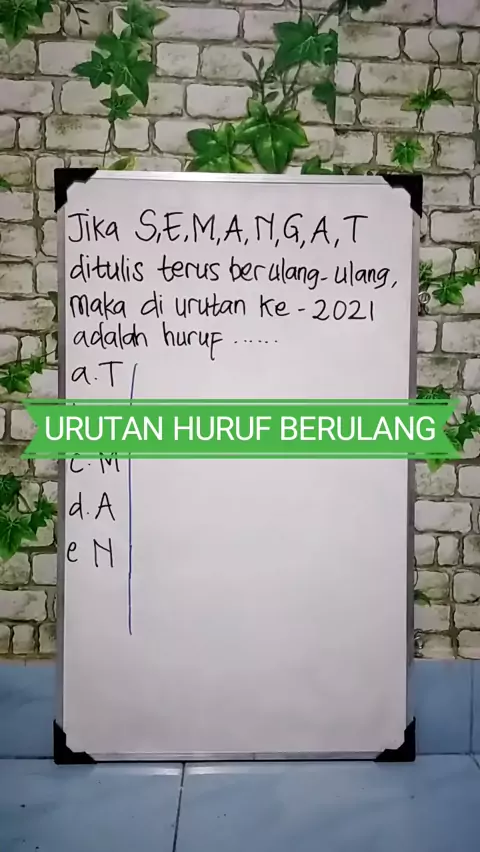 Jika S,E,M,A,N,G,A,T
ditulis terus berulang-ulang,
maka di urutan ke-2021
adalah huruf ......
a. T
URUTAN HURUF BERULANG
c. M
d. A
e N